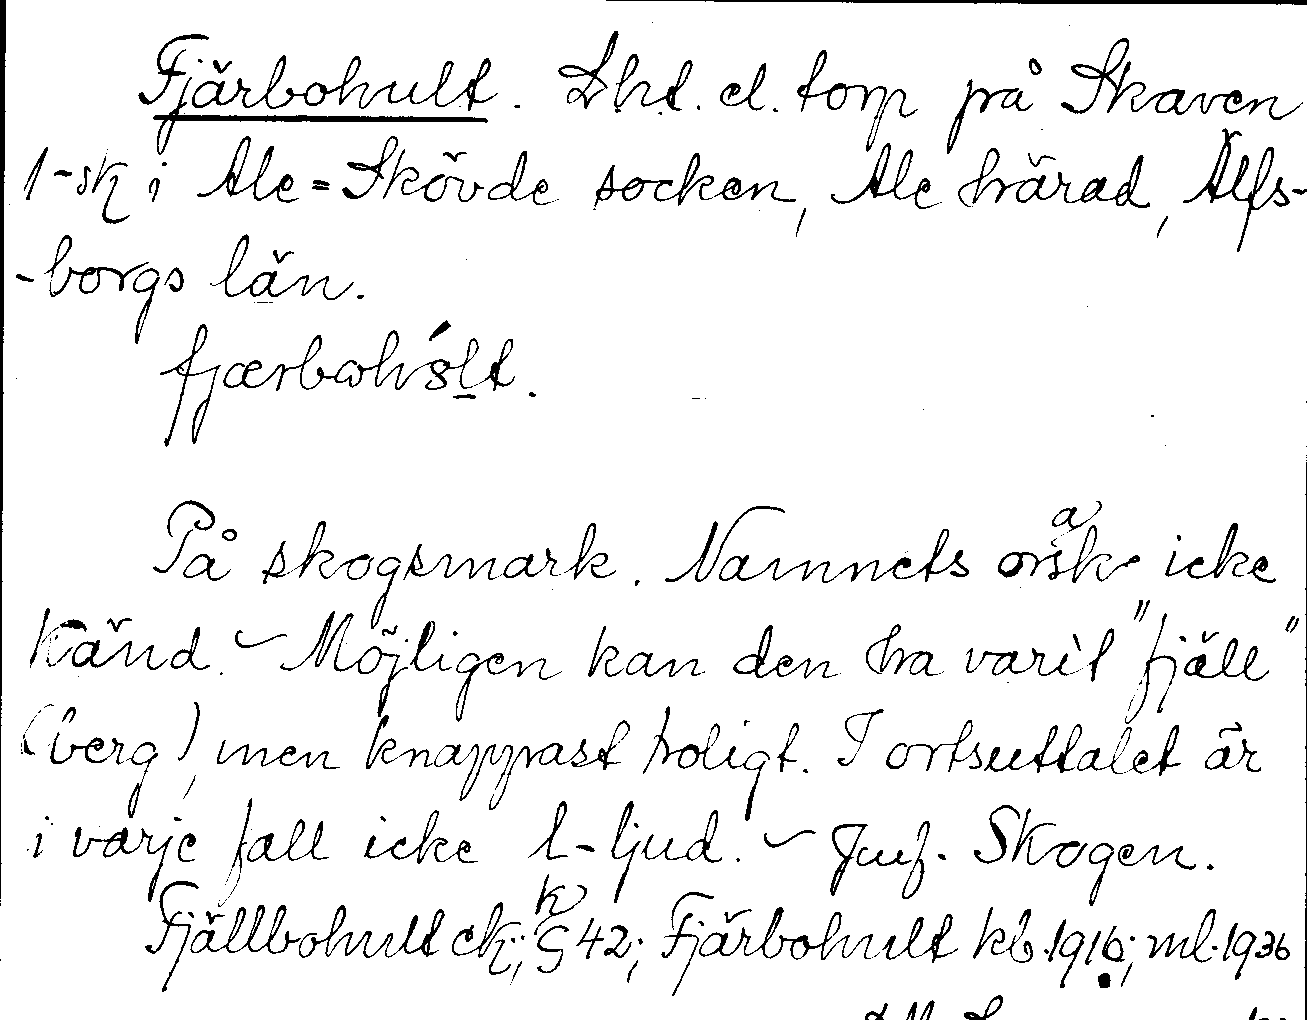 Fjärbohult. Lht. el. torp på Skaven
1-sk i Ale=Skövde socken, Ale härad, Älfs-
-borgs län.
fjærbωhúlt.
På skogsmark. Namnets orsak icke
känd. - Möjligen kan den ha varit "fjäll"
(berg), men knappast troligt. I ortsuttalet är
i varje fall icke l-ljud. - Jmf. Skogen.
Fjällbohult ek; k G 42; Fjärbohult kb. 1916; ml. 1936